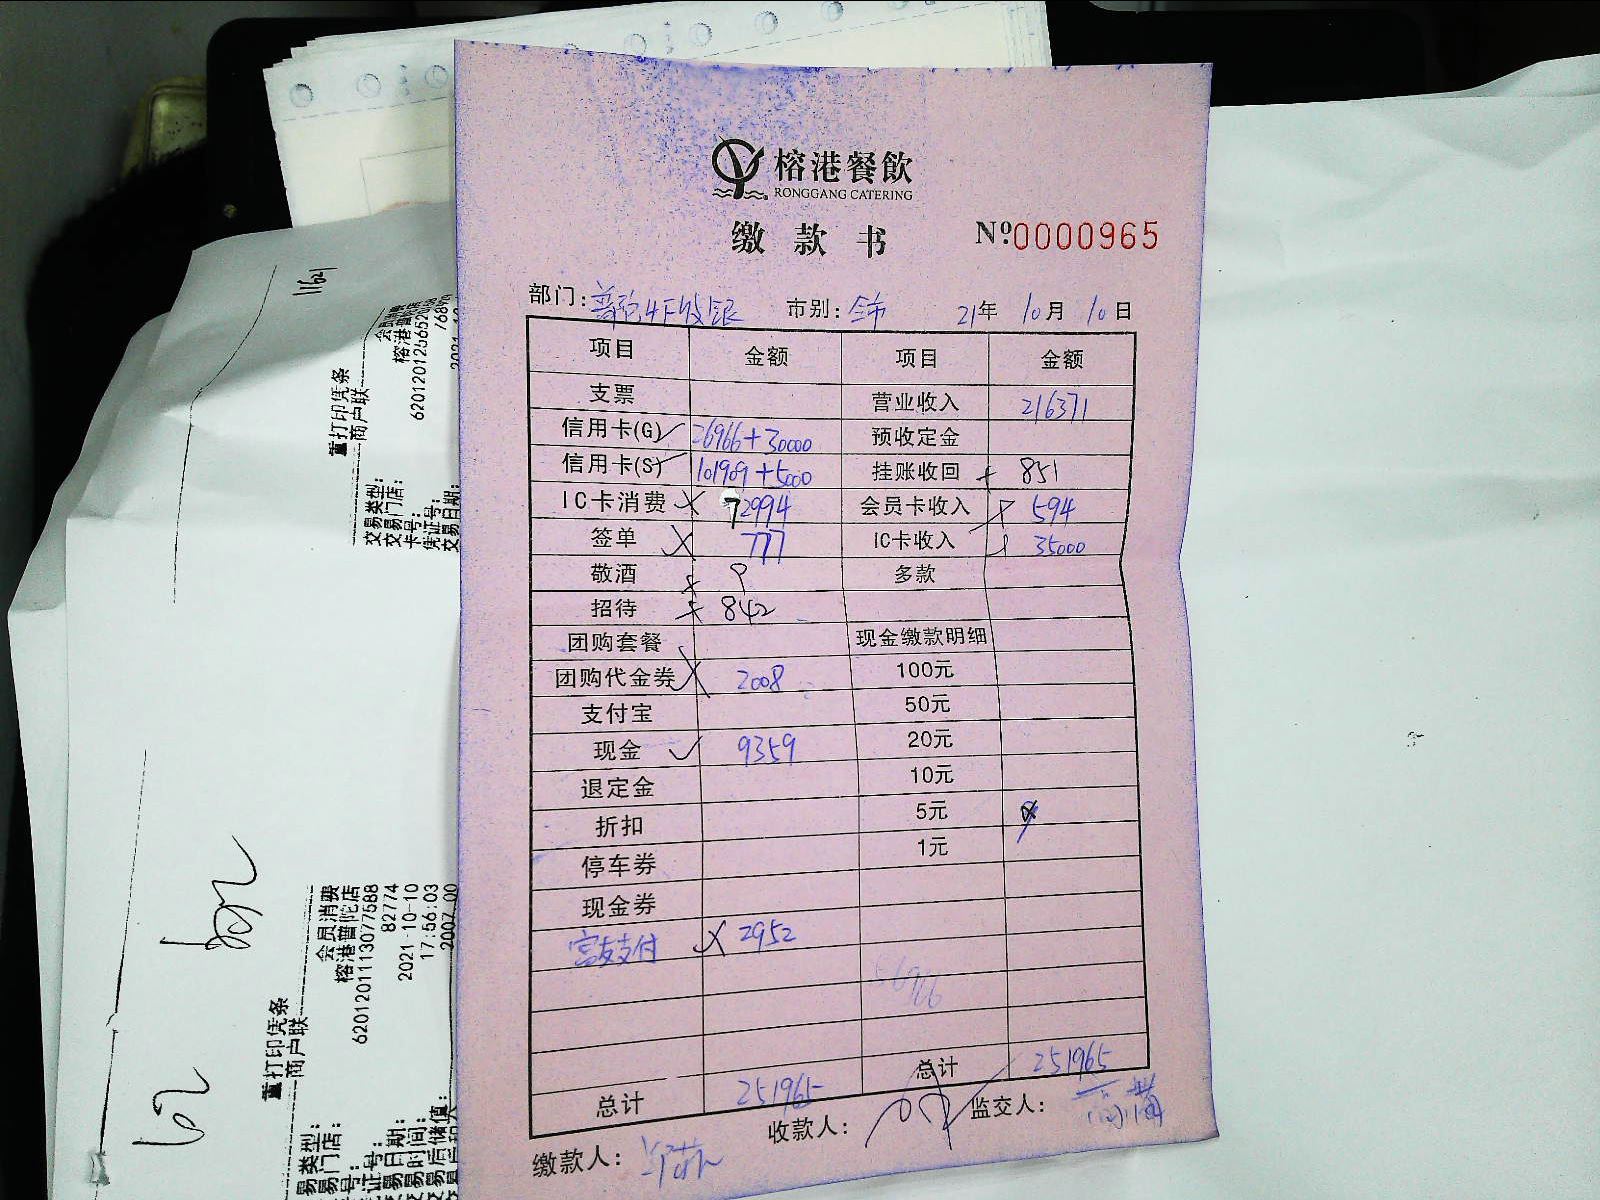 榕港餐飲
RONGGANG CATERING
缴款书 №0000965
部门: 普陀4F收银 市别: 全市 21年 10月 10日
项目 金额 项目 金额
支票 营业收入 216371
信用卡(G) 26966+30000 预收定金
信用卡(S) 101909+5000 挂账收回 851
IC卡消费 72994 会员卡收入 594
签单 777 IC卡收入 35000
敬酒 多款
招待 842
团购套餐 现金缴款明细
团购代金券 2008 100元
支付宝 50元
现金 9359 20元
退定金 10元
折扣 5元
停车券 1元
现金券
富友支付 2952
总计 251965 总计 251965
缴款人: 收款人: 监交人:
11621
重打印凭条
商户联
交易类型: 会员消费
交易门店: 榕港普
卡号:
凭证号:
交易日期:
重打印凭条
商户联
易类型: 会员消费
易门店: 榕港普陀店
号: 6201201113077588
证号: 82774
易日期: 2021-10-10
易时间: 17:56:03
易后储值: 2007.00